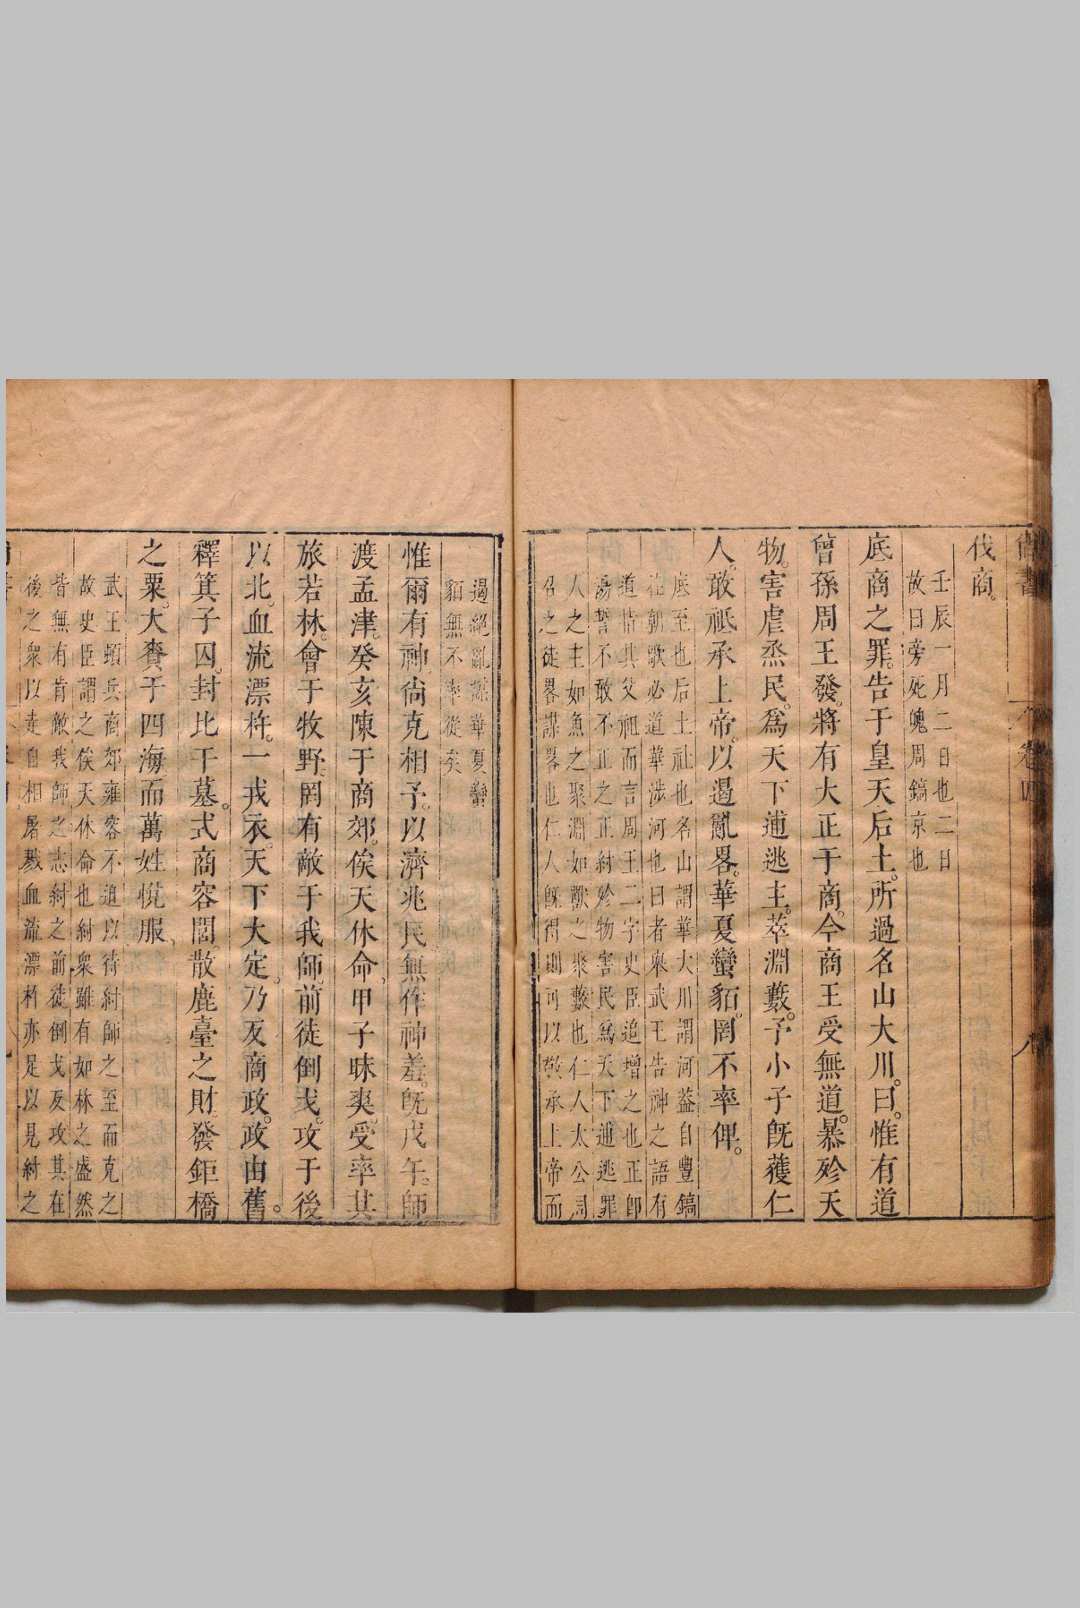 尚書 卷四 八
伐商。
壬辰一月二日也二日
故曰旁死魄周鎬京也
底商之罪。告于皇天后土。所過名山大川。曰。惟有道
曾孫周王發。將有大正于商。今商王受無道。暴殄天
物。害虐烝民。爲天下逋逃主。萃淵藪。予小子旣獲仁
人。敢祗承上帝。以遏亂畧。華夏蠻貊。罔不率俾。
底至也后土社也名山謂華大川謂河葢自豐鎬
徃朝歌必道華涉河也曰者舉武王告神之語有
道指其父祖而言周王二字史臣追增之也正卽
湯誓不敢不正之正紂殄物害民爲天下逋逃罪
人之主如魚之聚淵如獸之聚藪也仁人太公周
召之徒畧謀畧也仁人旣得則可以敬承上帝而
遏絕亂謀華夏蠻
貊無不率從矣
惟爾有神。尙克相予。以濟兆民。無作神羞。旣戊午。師
渡孟津。癸亥陳于商郊。俟天休命。甲子昧爽。受率其
旅若林。會于牧野。罔有敵于我師。前徒倒戈。攻于後
以北。血流漂杵。一戎衣。天下大定。乃反商政。政由舊。
釋箕子囚。封比干墓。式商容閭。散鹿臺之財。發鉅橋
之粟。大賚于四海。而萬姓悅服。
武王頓兵商郊雍容不迫以待紂師之至而克之
故史臣謂之俟天休命也紂衆雖有如林之盛然
皆無有肯敵我師之志紂之前徒倒戈反攻其在
後之衆以走自相屠戮血流漂杵亦足以見紂之